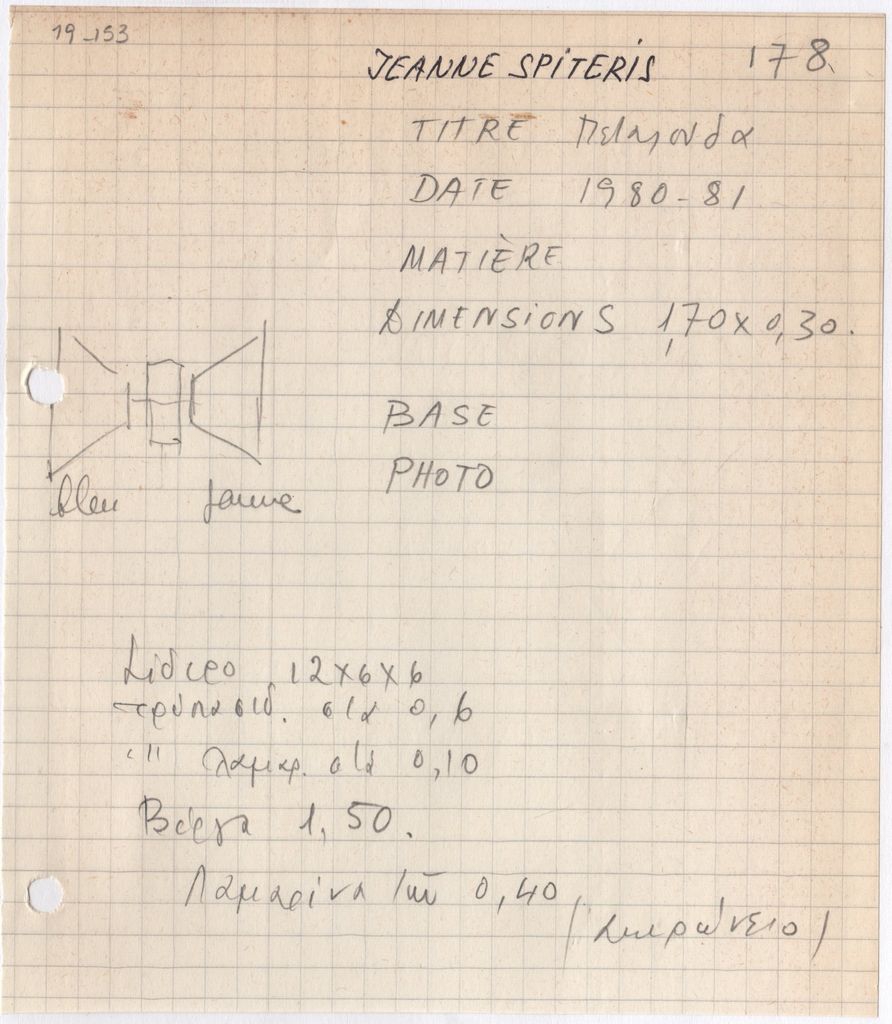 19-153
JEANNE SPITERIS 178
TITRE Πεταλούδα
DATE 1980-81
MATIÈRE
DIMENSIONS 1,70 x 0,30.
BASE
PHOTO
bleu jaune
Σίδερο 12x6x6
τρύπα σιδ. στα 0,6
" λαμαρ. στα 0,10
Βέργα 1,50.
Λαμαρίνα 0,40
(Σκιρώνειο)